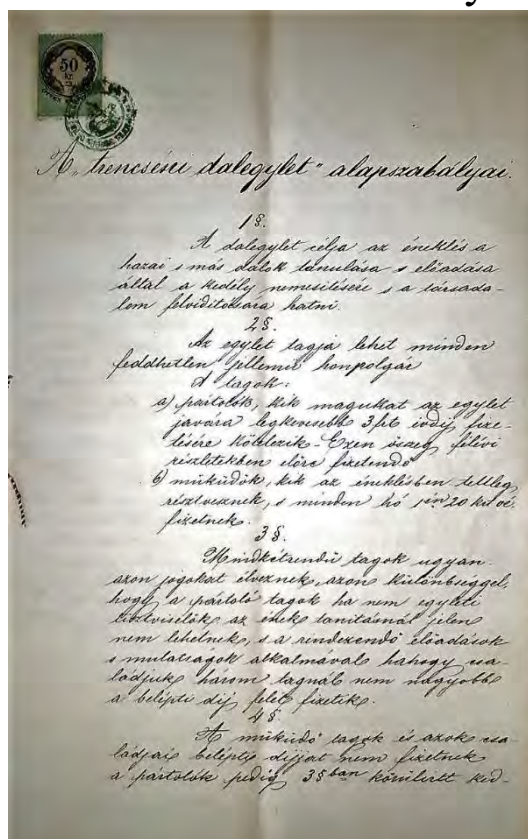 50
kr.
A „trencséni dalegylet" alapszabályai.
1 §.
A dalegylet célja az éneklés a
hazai s más dalok tanulása s előadása
által a kedély nemesítésére s a társada-
lom felviditására hatni.
2 §.
Az egylet tagja lehet minden
feddhetlen jellemű honpolgár
A tagok:
a) pártolók, kik magukat az egylet
javára legkevesebb 3 frt évdíj fize-
tésére kötelezik. Ezen összeg félévi
részletekben előre fizetendő
b) müküdők, kik az éneklésben tettleg
résztvesznek, s minden hó 20 kr
fizetnek.
3 §.
Mindkétrendű tagok ugyan-
azon jogokat élveznek, azon különbséggel,
hogy a pártoló tagok ha nem egyleti
tisztviselők az ének tanitásnál jelen
nem lehetnek, s a rendezendő előadások
s mulatságok alkalmával hahogy csa-
ládjuk három tagnál nem nagyobb
a belépti díj felét fizetik.
4 §.
A müküdő tagok és azok csa-
ládjai belépti díjjat nem fizetnek
a pártolók pedig 3 § ban körülirt ked-